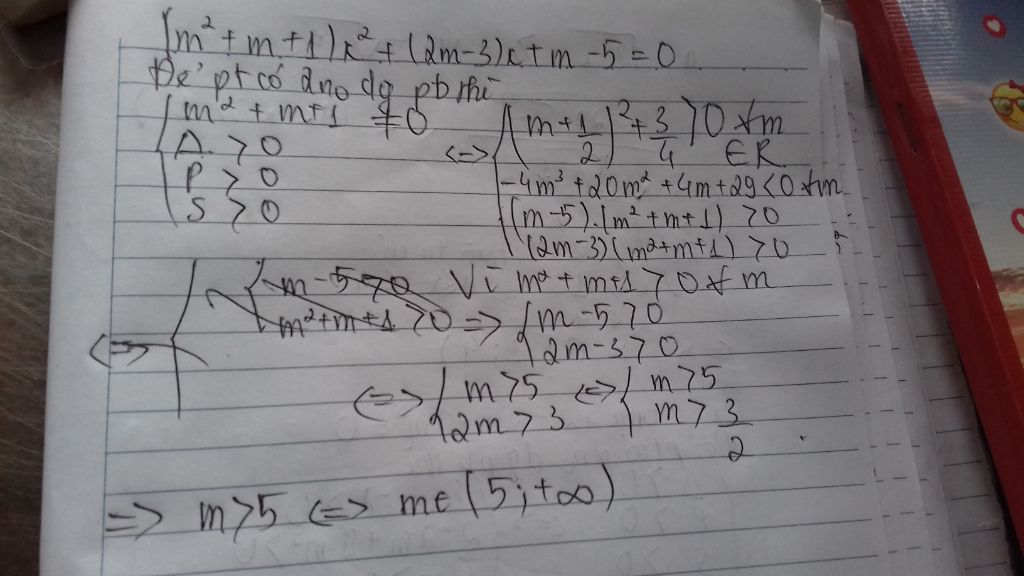 (m² + m + 1)x² + (2m - 3)x + m - 5 = 0
Để pt có 2no dg pb thì
{ m² + m + 1 ≠ 0
Δ > 0
P > 0
S > 0
<=> { (m + 1/2)² + 3/4 > 0 ∀m ∈ R
-4m³ + 20m² + 4m + 29 < 0 ∀m
(m - 5).(m² + m + 1) > 0
(2m - 3)(m² + m + 1) > 0
<=> { { m - 5 > 0
m² + m + 1 > 0
Vì m² + m + 1 > 0 ∀ m
=> { m - 5 > 0
2m - 3 > 0
<=> { m > 5
2m > 3
<=> { m > 5
m > 3/2
=> m > 5 <=> m ∈ (5; +∞)